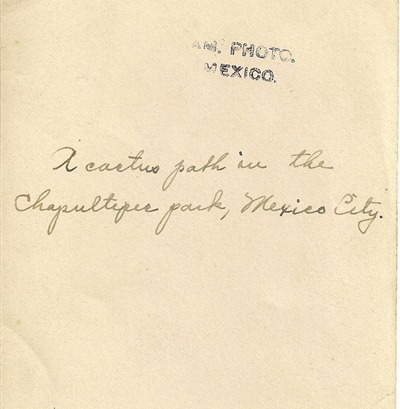 AM. PHOTO.
MEXICO.
A cactus path in the
Chapultepec park, Mexico City.